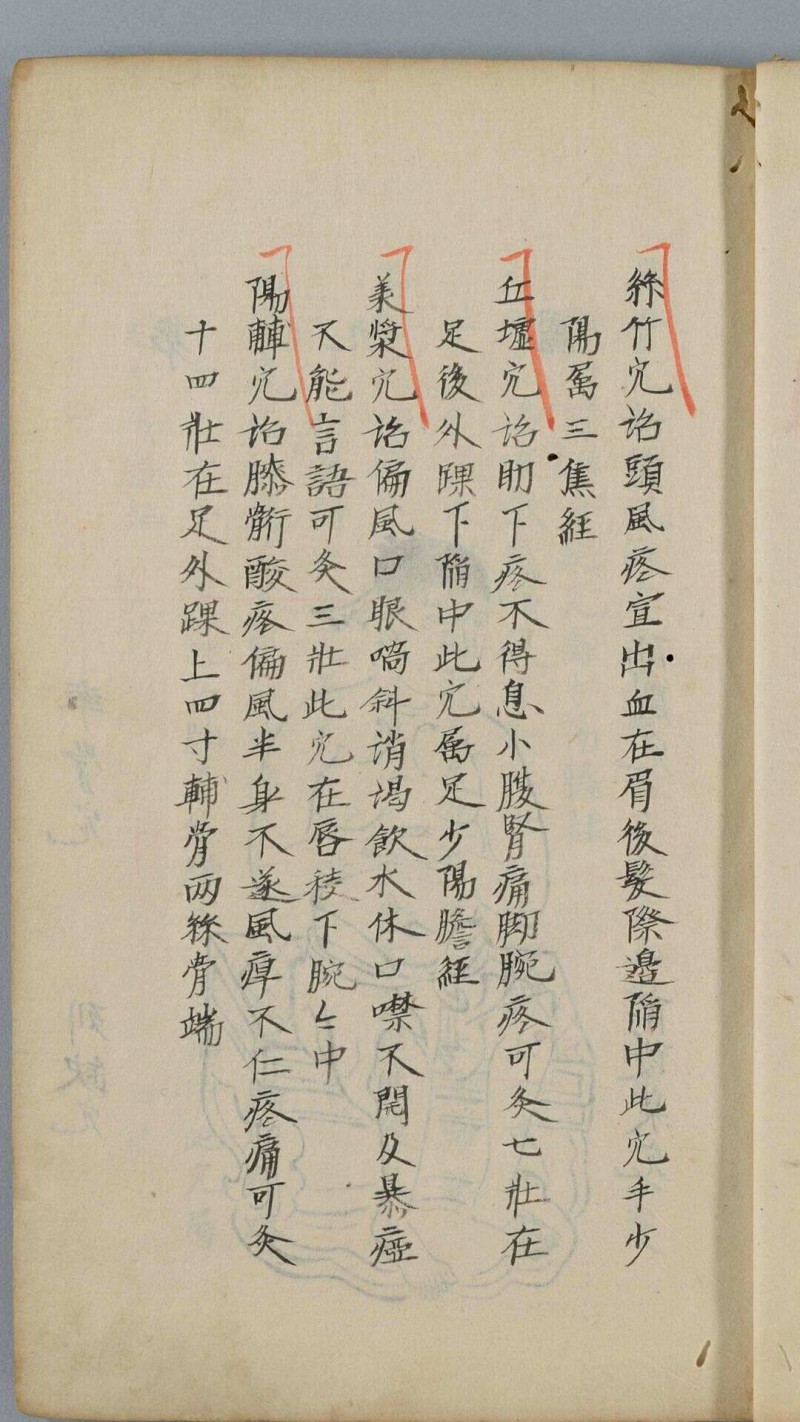 絲竹穴治頭風疼宜出血在眉後髮際邊陷中此穴手少
陽屬三焦經
丘墟穴治肋下疼不得息小腹腎痛脚腕疼可灸七壯在
足後外踝下陷中此穴屬足少陽膽經
美漿穴治偏風口眼喎斜誚渴飲水休口噤不開及暴瘂
不能言語可灸三壯此穴在唇稜下腕仝中
陽輔穴治膝䯒酸疼偏風半身不遂風痺不仁疼痛可灸
十四壯在足外踝上四寸輔骨兩絲骨端